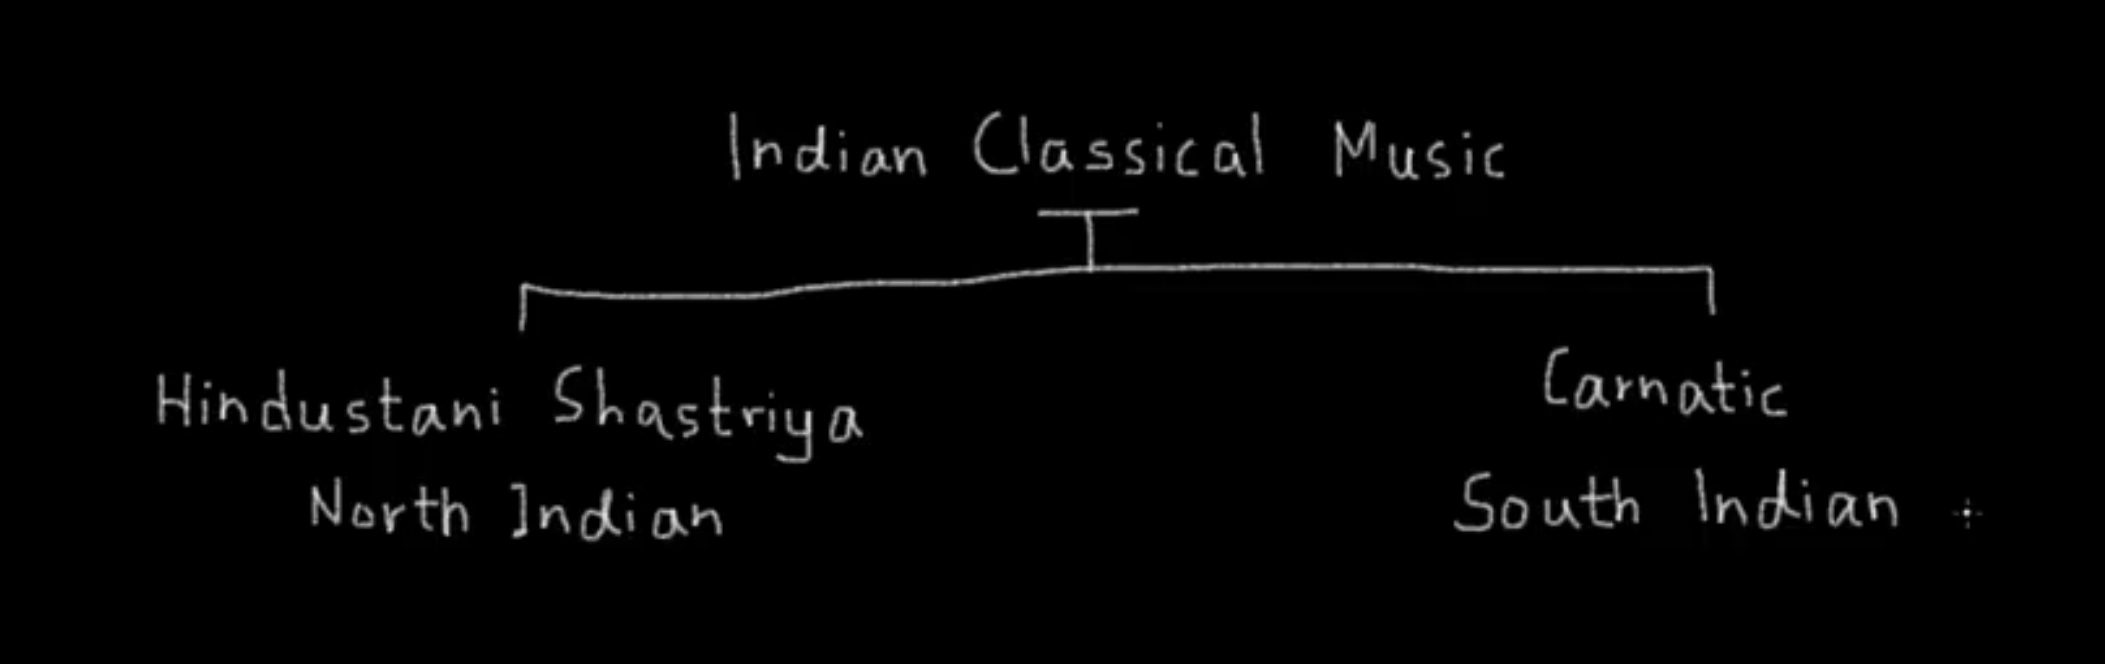 Indian Classical Music
Hindustani Shastriya
North Indian
Carnatic
South Indian